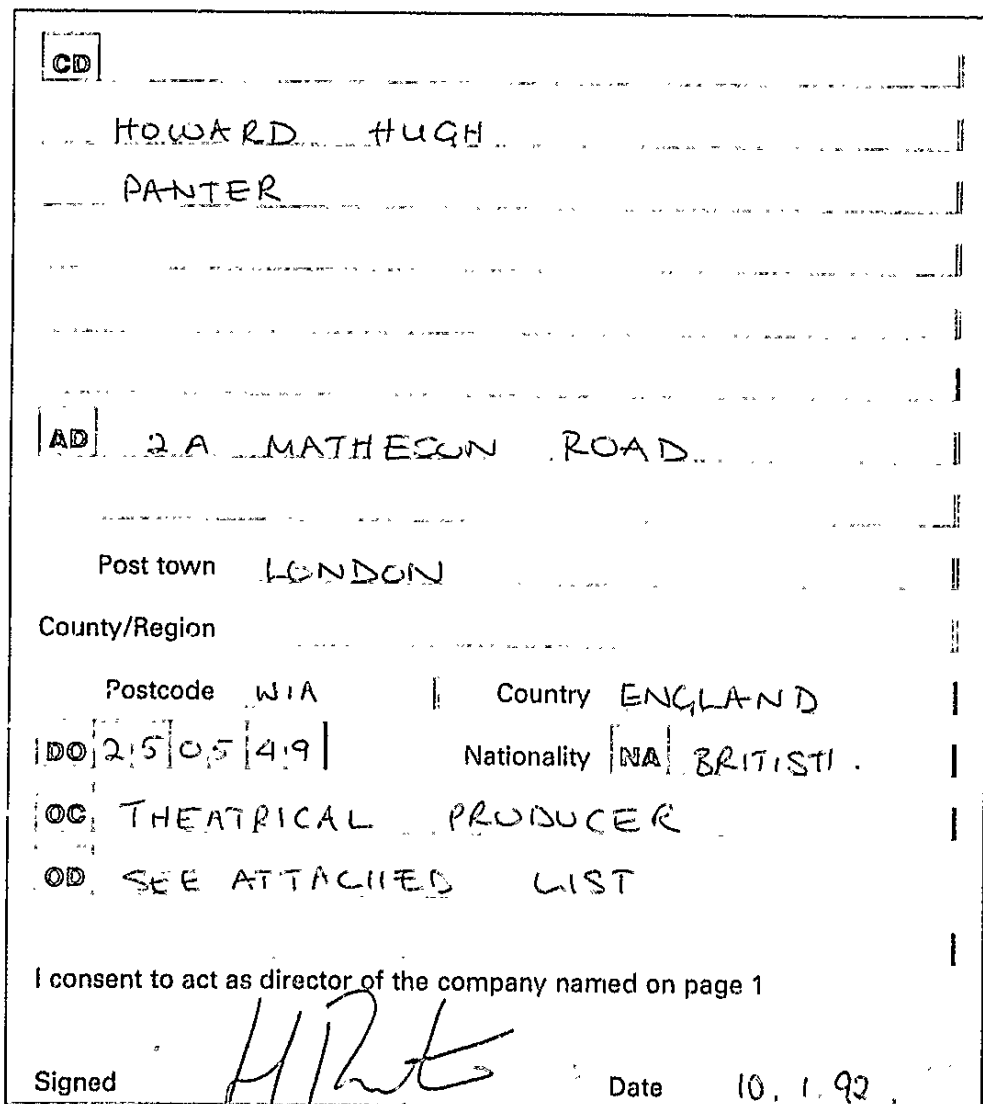 CD
HOWARD HUGH
PANTER
AD 2A MATHESON ROAD
Post town LONDON
County/Region
Postcode W1A Country ENGLAND
DO 25 05 49 Nationality NA BRITISH.
OC THEATRICAL PRODUCER
OD SEE ATTACHED LIST
I consent to act as director of the company named on page 1
Signed Date 10.1.92.